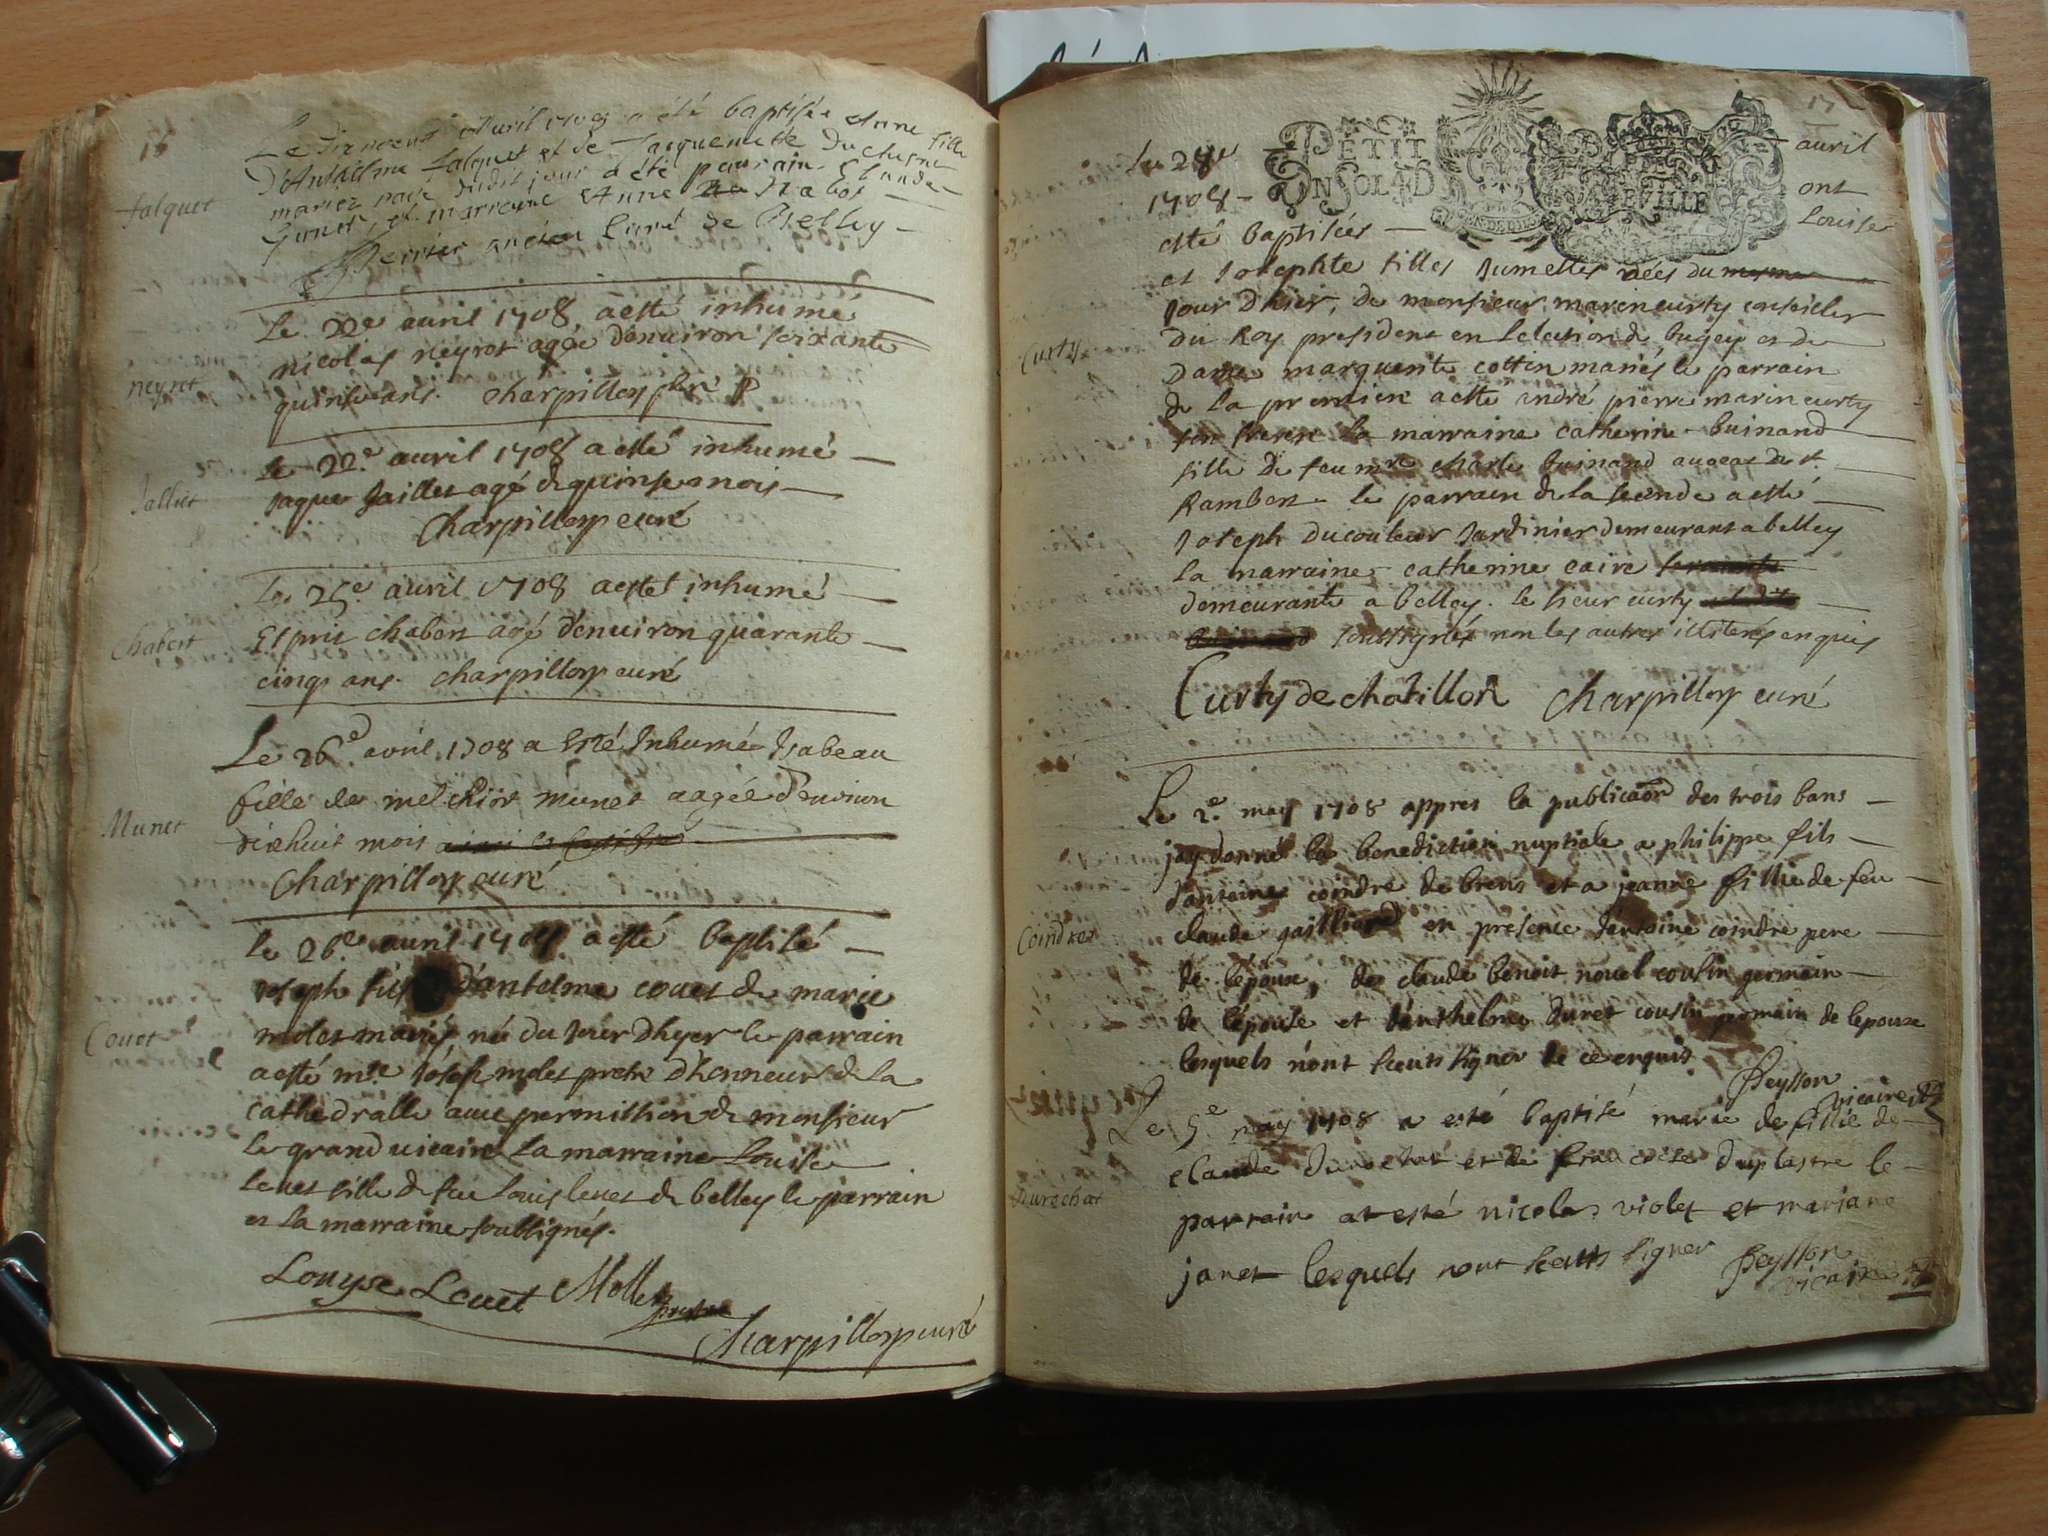 16
Le Dixneuf Avril 1708 a été baptisée Anne fille
D'Anthelme Jalquet et de Jacquemette Duchesne
mariez née dudit jour a été parrain Claude
et marraine Anne
Perrier ancien Curé de Belley
Jalquet
Le 22e avril 1708 a esté inhumé
nicolas neyret agée denuiron soixante
quinse ans. Charpilloz
neyret
le 22e. auril 1708 a esté inhumé
Jaque Jaillet agé de quinse mois
Charpilloz curé
Jalliet
Le 25e. auril 1708 a estét inhumé
Esprit chabert agé d'enuiron quarante
cinqs ans. Charpilloz curé
Chabert
Le 26e. avril 1708 a Esté Inhumée Isabeau
fille de melchior munet aagée d'environ
dixhuit mois
Charpilloz curé
Munet
le 26e. auril 1708. a esté baptisé
Joseph fils d'antelme couet de marie
molet mariés, né du Jour Dhyer le parrain
a esté mre Joseph molet pretre d'honneur de la
cathedralle auec permission de monsieur
le grand uicaire la marraine Louise
leuet fille de feu Louis leuet de belley le parrain
et la marraine soubsignés.
Couet
Louyse Leuet Mollet prestre
Charpilloz curé
17
PETIT
EN SOL 4 D
Le 28e auril
1708 - ont
esté baptisées - Louise
et Josephte filles Jumelles nées du
Jour D'hier, de monsieur maren curty conseiller
du Roy president en Lelection de bugey et de
Dame marguerite cottin mariés le parrain
de la premiere a esté André pierre marin curty
son frere la marraine catherine buinand
fille de feu mre charle buinand auocat de st.
Rambert - le parrain de la seconde a esté
Joseph ducouleur Jardinier demeurant a belley
la marraine catherine caire
demeurante a belley. le sieur curty
soussignés non les autres illiterés enquis
Curty
Curty de chatillon Charpilloz curé
Le 2e. may 1708 appres la publicaon des trois bans
jay donné la benediction nuptiale a philippe fils
d'antoine coindre de brens et a jeanne fillie de feu
claude gailliard en présence d'entoine coindre pere
de l'époux, de claude benoit nouel cousin germain
de l'épouse et d'anthelme duret cousin germain de lepouse
lesquels n'ont sceuts signer de ce enquis
Peysson vicaire
Coindre
Le 5e. may 1708 a esté baptisé marie de fillie de
claude durochat et de francoise duplastre le
parrain at esté nicolas violet et mariane
janet lesquels nont sceuts signer Peysson
vicaire
Durochat